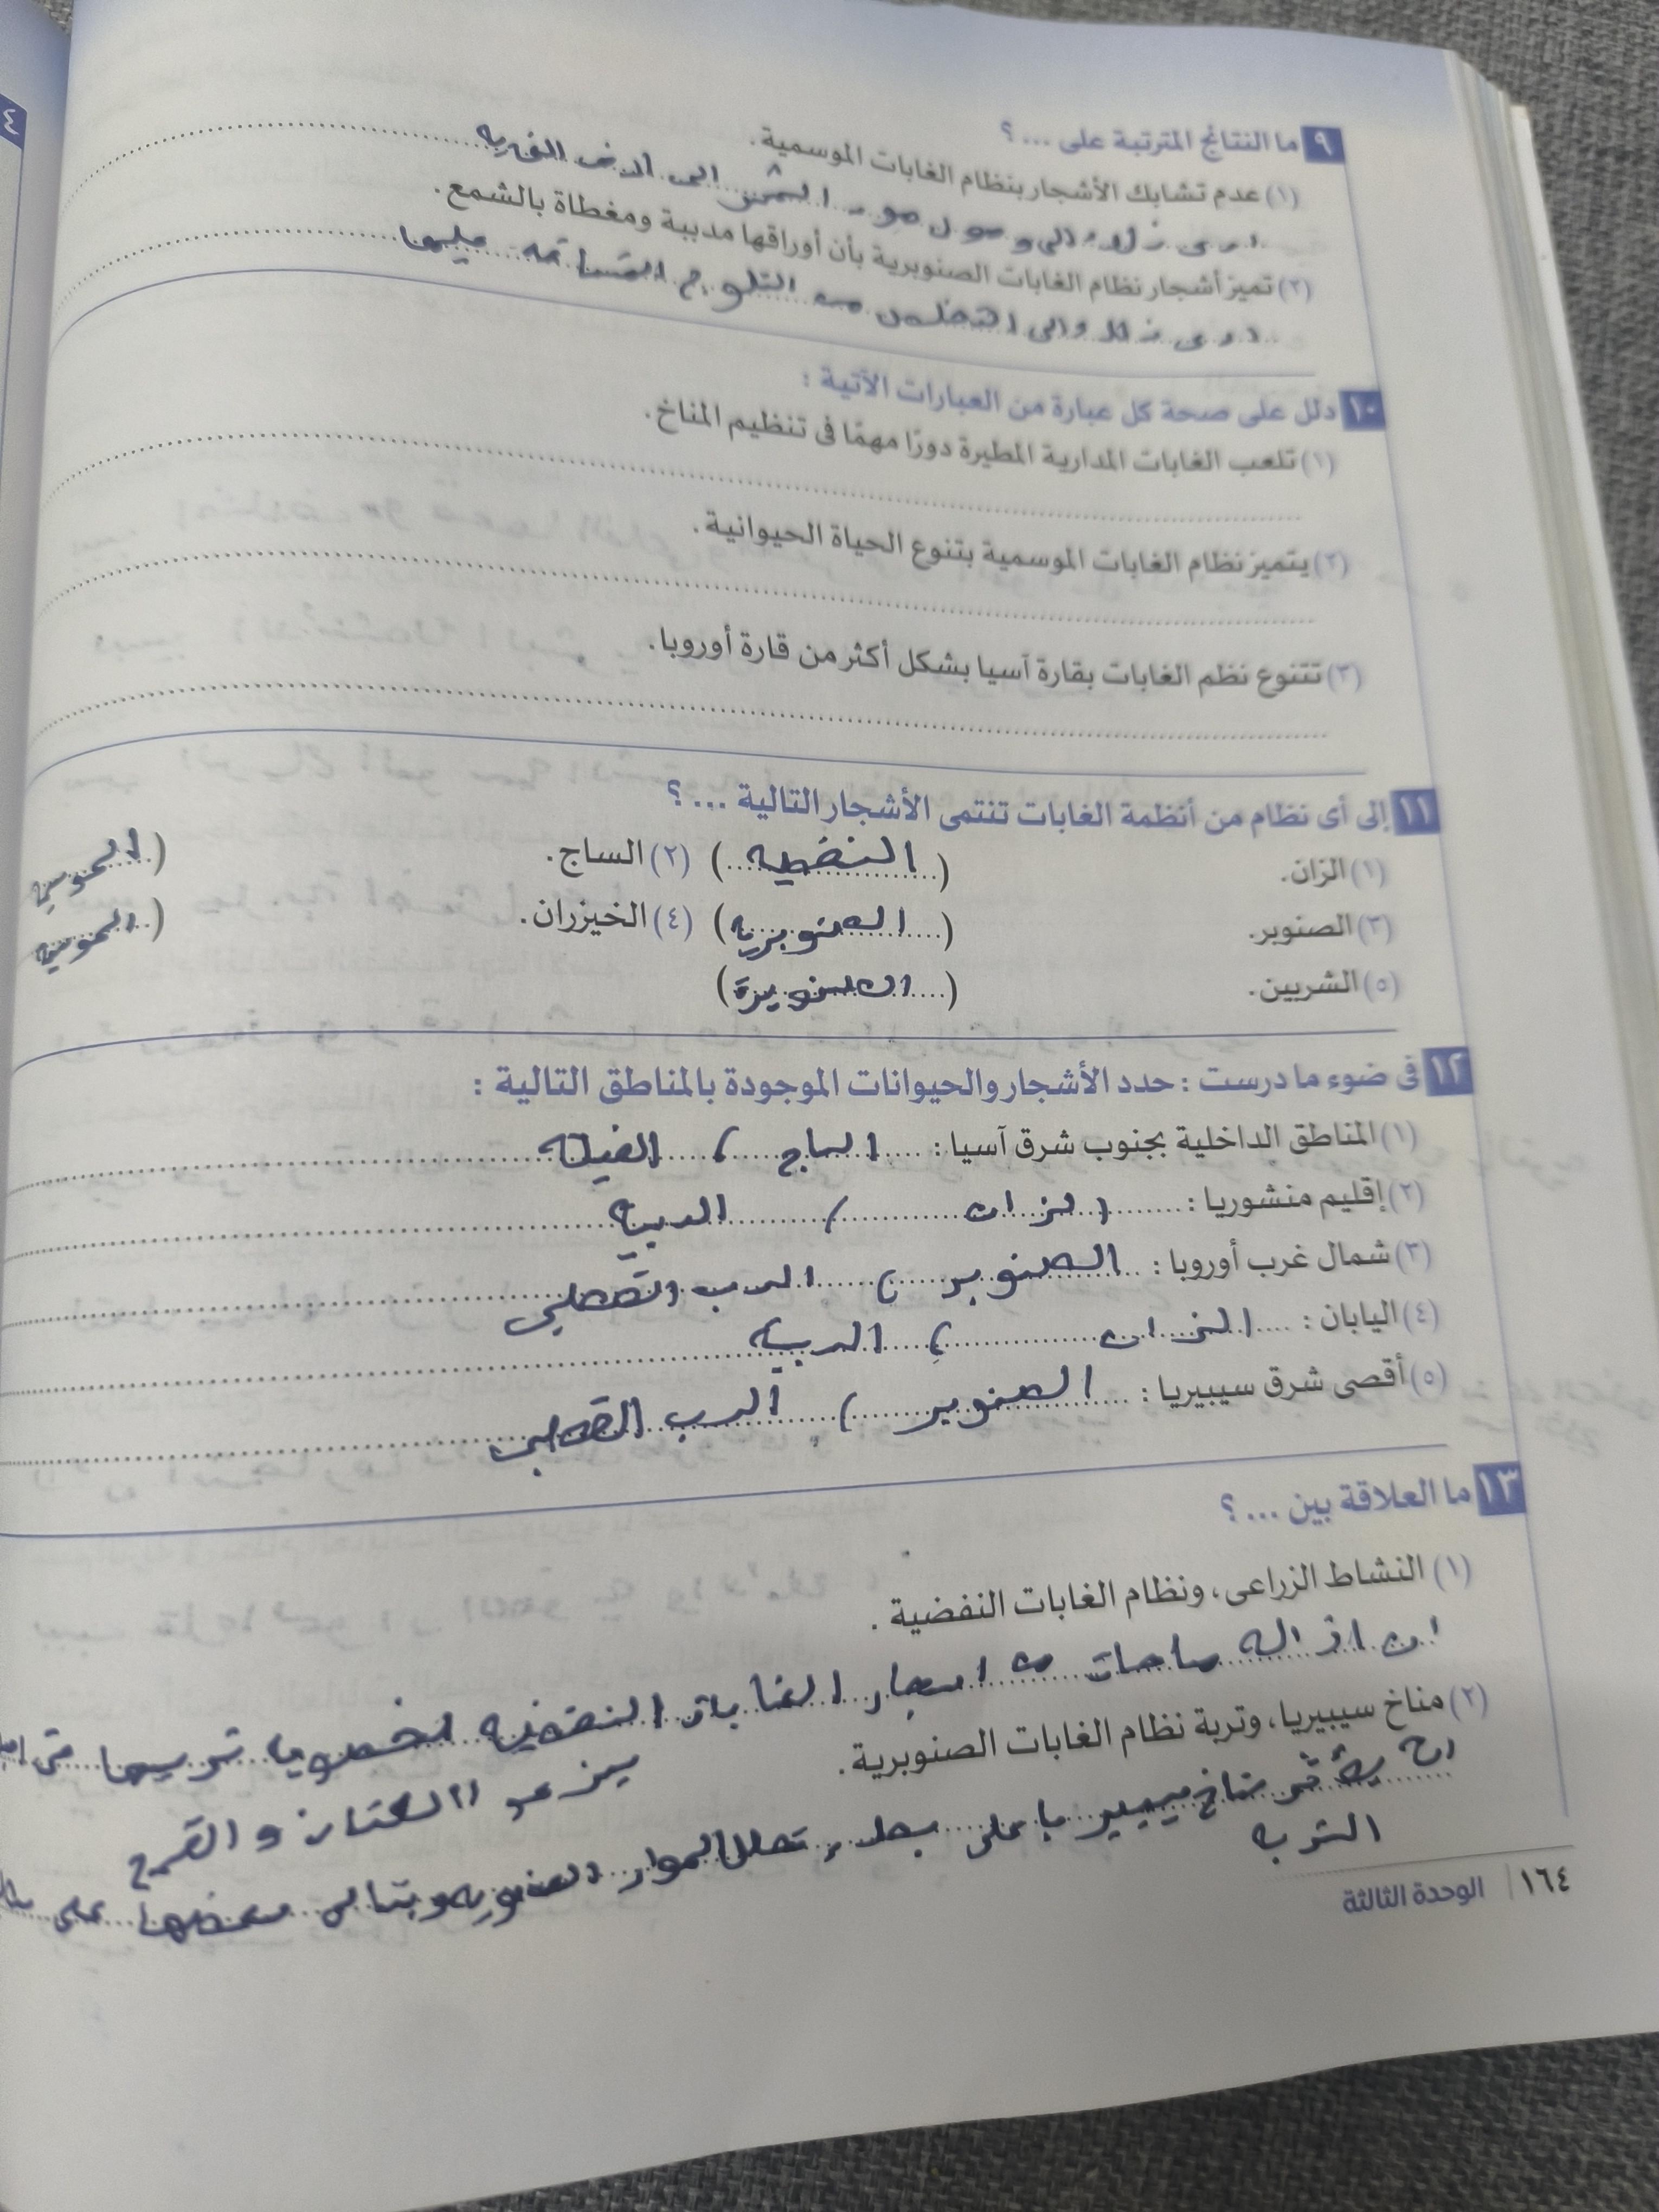 ٩ ما النتائج المترتبة على ... ؟
(١) عدم تشابك الأشجار بنظام الغابات الموسمية.
الى وصول ضوء الشمس الى الارض الغابيه
(٢) تميز أشجار نظام الغابات الصنوبرية بأن أوراقها مدببة ومغطاة بالشمع.
التخلص من الثلوج المتساقطه عليها
١٠ دلل على صحة كل عبارة من العبارات الآتية :
(١) تلعب الغابات المدارية المطيرة دورًا مهمًا فى تنظيم المناخ.
(٢) يتميز نظام الغابات الموسمية بتنوع الحياة الحيوانية.
(٣) تتنوع نظم الغابات بقارة آسيا بشكل أكثر من قارة أوروبا.
١١ إلى أى نظام من أنظمة الغابات تنتمى الأشجار التالية ... ؟
(١) الزان. (النفضيه) (٢) الساج. (الموسمية)
(٣) الصنوبر. (الصنوبريه) (٤) الخيزران. (الموسمية)
(٥) الشربين. (الصنوبرية)
١٢ فى ضوء ما درست : حدد الأشجار والحيوانات الموجودة بالمناطق التالية :
(١) المناطق الداخلية بجنوب شرق آسيا : الساج ، الفيله
(٢) إقليم منشوريا : الزان ، الدببه
(٣) شمال غرب أوروبا : الصنوبر ، الدب القطبي
(٤) اليابان : الزان ، الدببة
(٥) أقصى شرق سيبيريا : الصنوبر ، الدب القطبى
١٣ ما العلاقة بين ... ؟
(١) النشاط الزراعى، ونظام الغابات النفضية .
ان ازاله ساحات من اشجار الغابات النفضيه لخصوبة تربيتها
يزعو الكتان و القمح
(٢) مناخ سيبيريا، وتربة نظام الغابات الصنوبرية.
مناخ سيبيريا على تحلل المواد العضويه وبتالى على
التربه
١٦٤ | الوحدة الثالثة